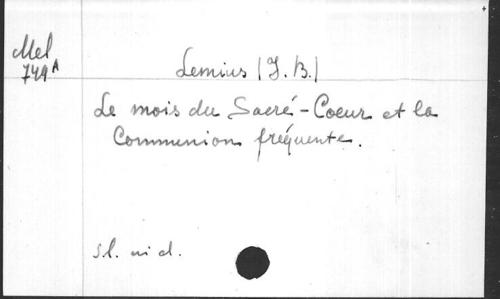 Mel
749A
Lemius (J. B.)
Le mois du Sacré-Coeur et la
Communion fréquente.
s.l. ni d.